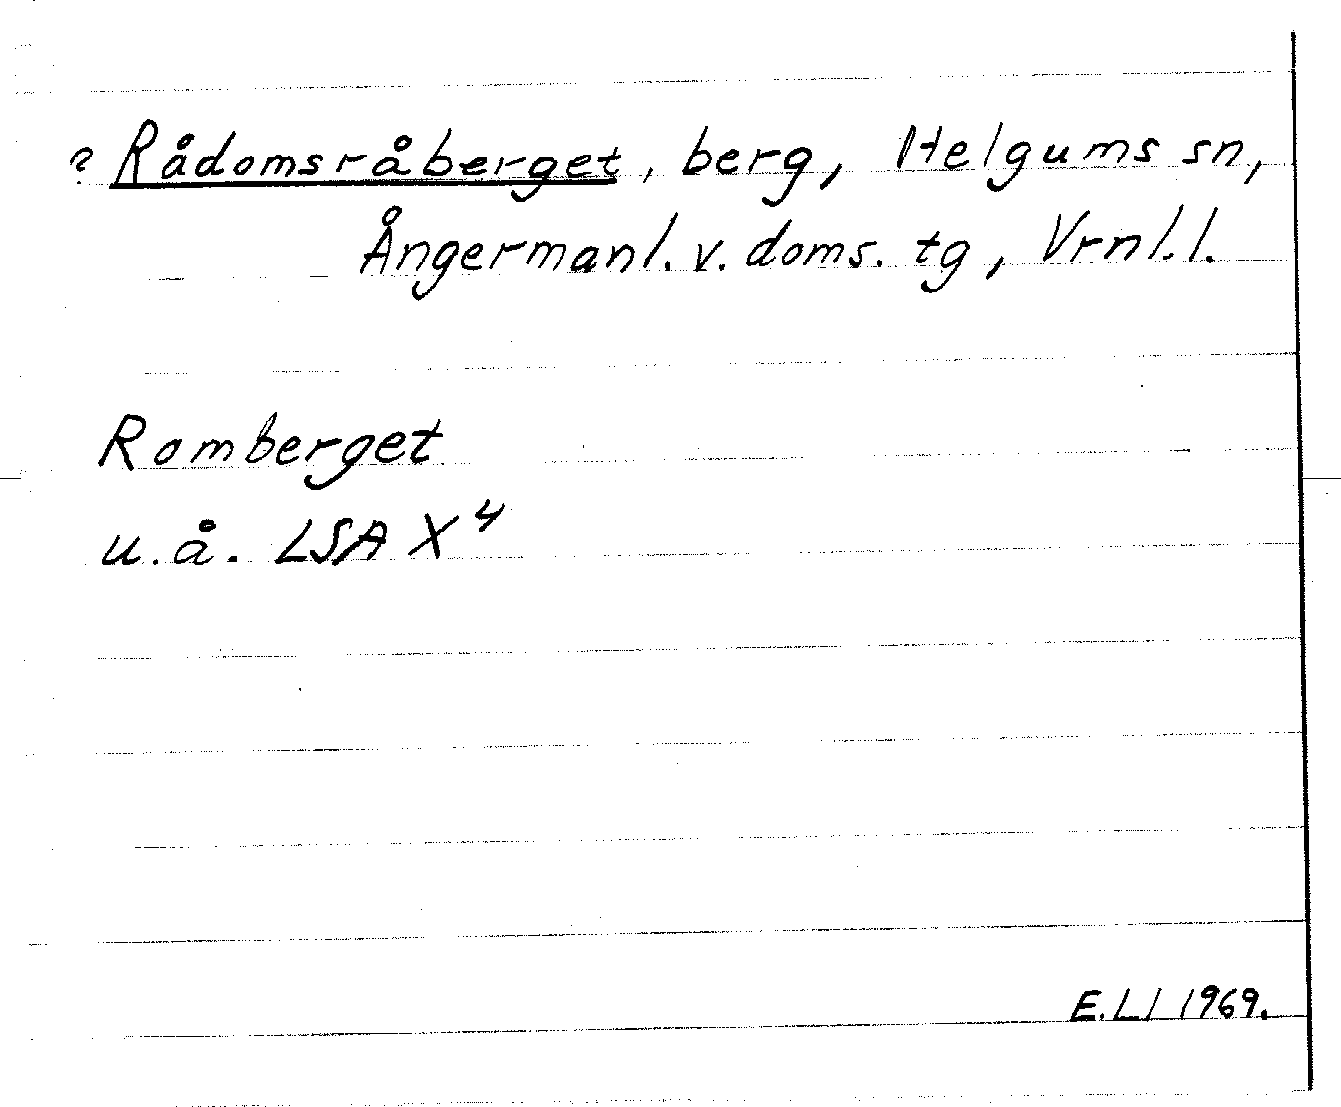 ? Rådomsråberget, berg, Helgums sn,
Ångermanl. v. doms. tg, Vrnl.l.
Romberget
u.å. LSA X⁴
E.Ll 1969.